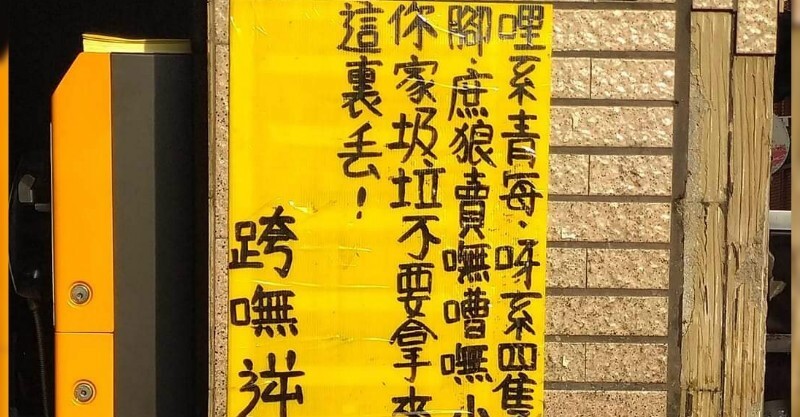 哩系青每.呀系四隻
腳.庶狼賣嘸嘈嘸
你家圾垃不要拿來
這裏丢!
跨嘸